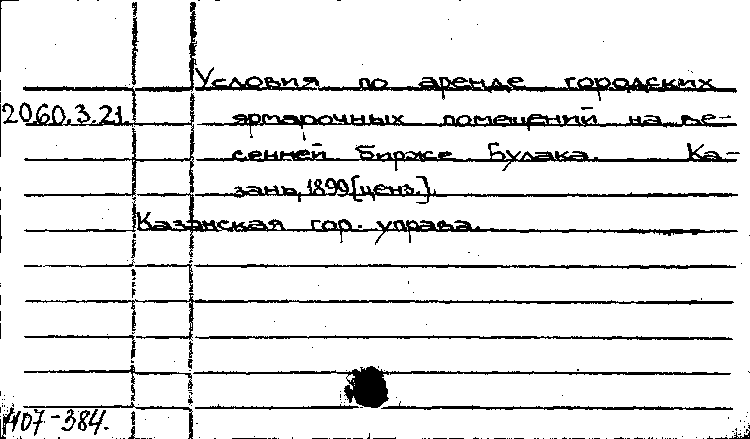 Условия по аренде городских
2060.3.21. ярмарочных помещений на ве-
сенней бирже Булака. Ка-
зань, 1899[ценз.].
Казанская гор. управа.
М07-384.